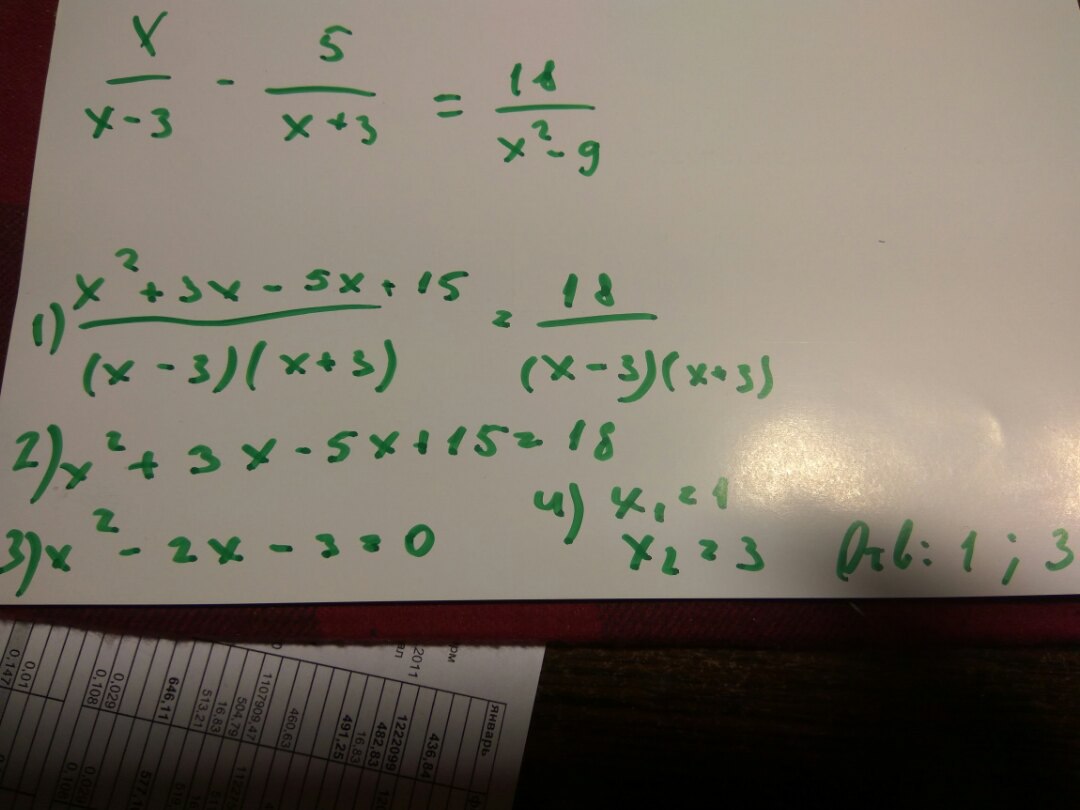 x/(x-3) - 5/(x+3) = 18/(x²-9)
1) (x²+3x-5x+15)/((x-3)(x+3)) = 18/((x-3)(x+3))
2) x²+3x-5x+15=18
3) x²-2x-3=0
4) x₁=1
x₂=3
Отв: 1; 3
январь
436,84
1222099
482,83
16.83
491,25
460,63
1107909,47
504,79
16.83
513,21
646,11
0,029
0,108
0,01
0,147
2011
577,1